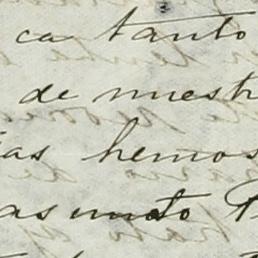 ca tanto
de nuestr
ias hemos
asunto P